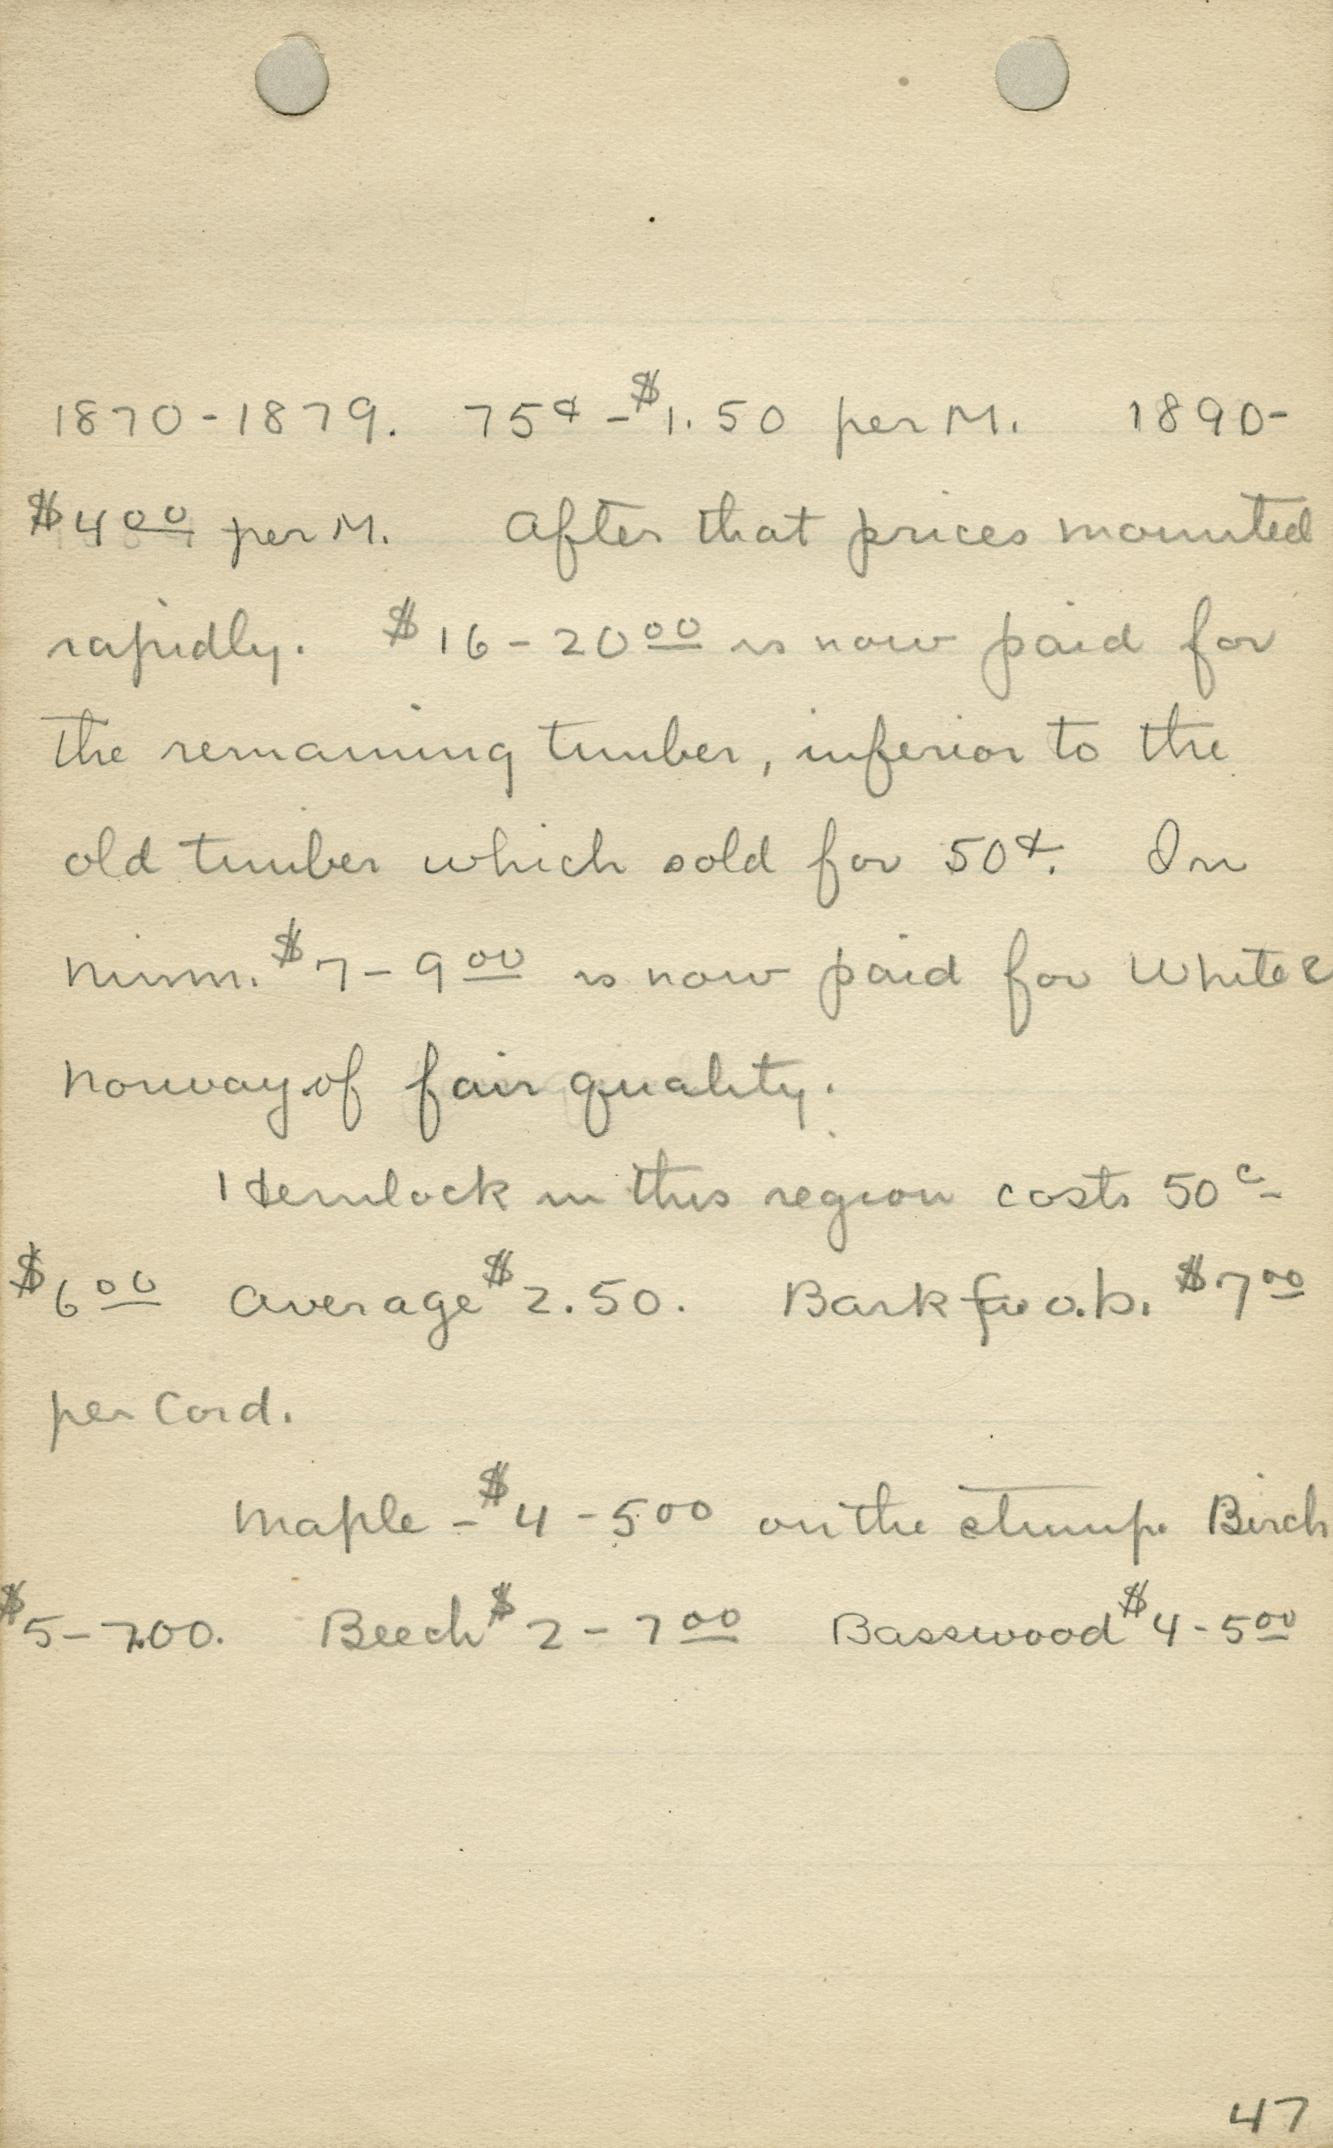 1870-1879. 75¢-$1.50 per M. 1890-
$4.00 per M. After that prices mounted
rapidly. $16-20.00 is now paid for
the remaining timber, inferior to the
old timber which sold for 50¢. In
Minn. $7-9.00 is now paid for White &
Norway of fair quality.
Hemlock in this region costs 50c-
$6.00 Average $2.50. Bark f.o.b. $7.00
per Cord.
Maple-$4-5.00 on the stump. Birch
$5-7.00. Beech $2-7.00 Basswood $4-5.00
47